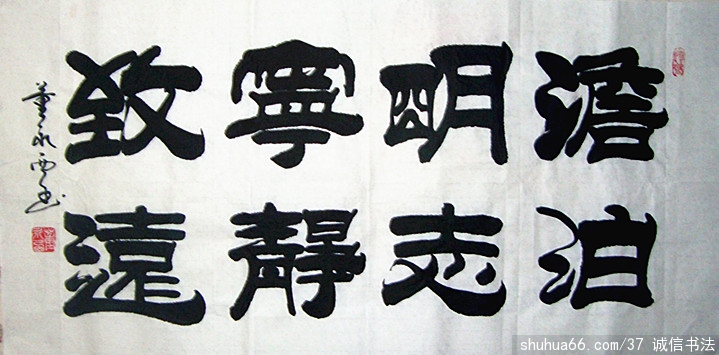 澹泊
明志
寧靜
致遠
董永西书
shuhua66.com/37 诚信书法